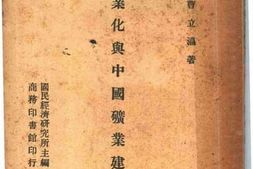 曹立瀛著
業化與中國礦業建
國民經濟研究所主編
商務印書館印行